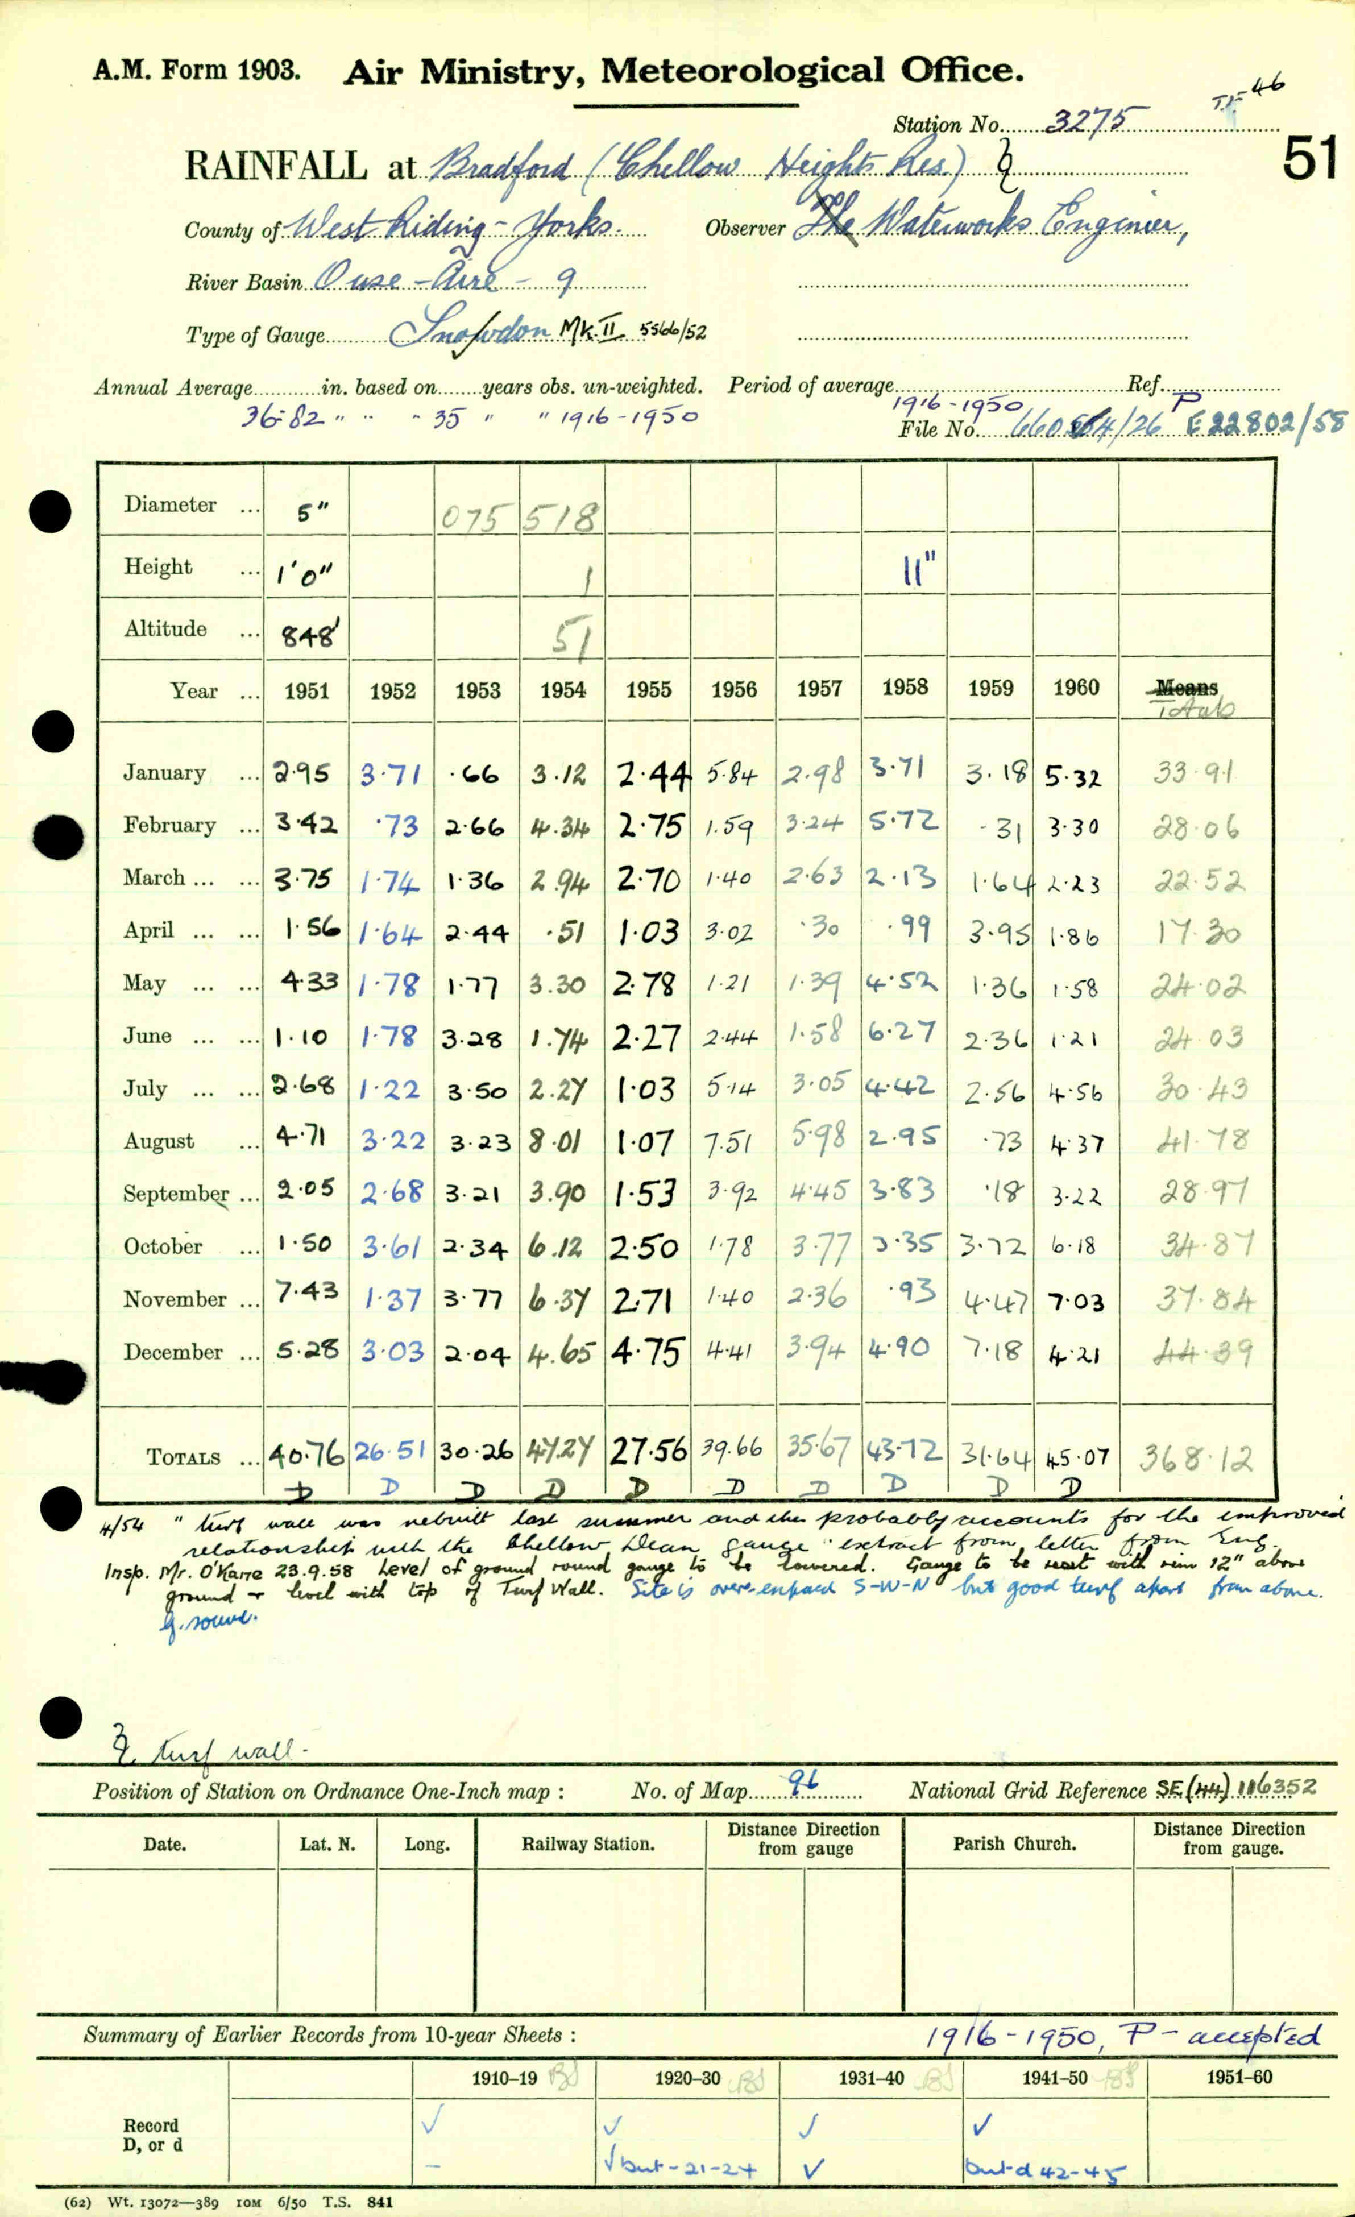 A.M. Form 1903. Air Ministry, Meteorological Office.
T.F 46
Station No. 3275
51
RAINFALL at Bradford (Chellow Heights Res.)
County of West Riding - Yorks. Observer The Waterworks Engineer,
River Basin Ouse - Aire - 9
Type of Gauge Snowdon Mk. II 5566/52
Annual Average in. based on years obs. un-weighted. Period of average Ref.
36.82 " " " 35 " " 1916-1950 1916-1950 P
File No. /26 E22802/58
Diameter ... 5" 075 518
Height ... 1'0" 1 11"
Altitude ... 848' 51
Year ... 1951 1952 1953 1954 1955 1956 1957 1958 1959 1960 Means
Totals
January ... 2.95 3.71 .66 3.12 2.44 5.84 2.98 3.71 3.18 5.32 33.91
February ... 3.42 .73 2.66 4.34 2.75 1.59 3.24 5.72 .31 3.30 28.06
March ... ... 3.75 1.74 1.36 2.94 2.70 1.40 2.63 2.13 1.64 2.23 22.52
April ... ... 1.56 1.64 2.44 .51 1.03 3.02 .30 .99 3.95 1.86 17.30
May ... ... 4.33 1.78 1.77 3.30 2.78 1.21 1.39 4.52 1.36 1.58 24.02
June ... ... 1.10 1.78 3.28 1.74 2.27 2.44 1.58 6.27 2.36 1.21 24.03
July ... ... 2.68 1.22 3.50 2.27 1.03 5.14 3.05 4.42 2.56 4.56 30.43
August ... 4.71 3.22 3.23 8.01 1.07 7.51 5.98 2.95 .73 4.37 41.78
September ... 2.05 2.68 3.21 3.90 1.53 3.92 4.45 3.83 .18 3.22 28.97
October ... 1.50 3.61 2.34 6.12 2.50 1.78 3.77 3.35 3.72 6.18 34.87
November ... 7.43 1.37 3.77 6.37 2.71 1.40 2.36 .93 4.47 7.03 37.84
December ... 5.28 3.03 2.04 4.65 4.75 4.41 3.94 4.90 7.18 4.21 44.39
TOTALS ... 40.76 26.51 30.26 47.27 27.56 39.66 35.67 43.72 31.64 45.07 368.12
D D D D D D D D D D
4/54 " turf wall was rebuilt last summer and this probably accounts for the improved
relationship with the Chellow Dean gauge " extract from letter from Eng.
Insp. Mr. O'Karre 23.9.58 Level of ground round gauge to be lowered. Gauge to be reset with rim 12" above
ground + level with top of Turf Wall. Site is over-exposed S-W-N but good turf apart from above.
turf wall.
Position of Station on Ordnance One-Inch map : No. of Map 96 National Grid Reference SE (44) 116352
Date. Lat. N. Long. Railway Station. Distance Direction from gauge Parish Church. Distance Direction from gauge.
Summary of Earlier Records from 10-year Sheets : 1916-1950, P - accepted
1910-19 BS 1920-30 BS 1931-40 BS 1941-50 BS 1951-60
Record ✓ ✓ ✓ ✓
D, or d – ✓ but -21-24 ✓ but d 42-45
(62) Wt. 13072—389 10M 6/50 T.S. 841